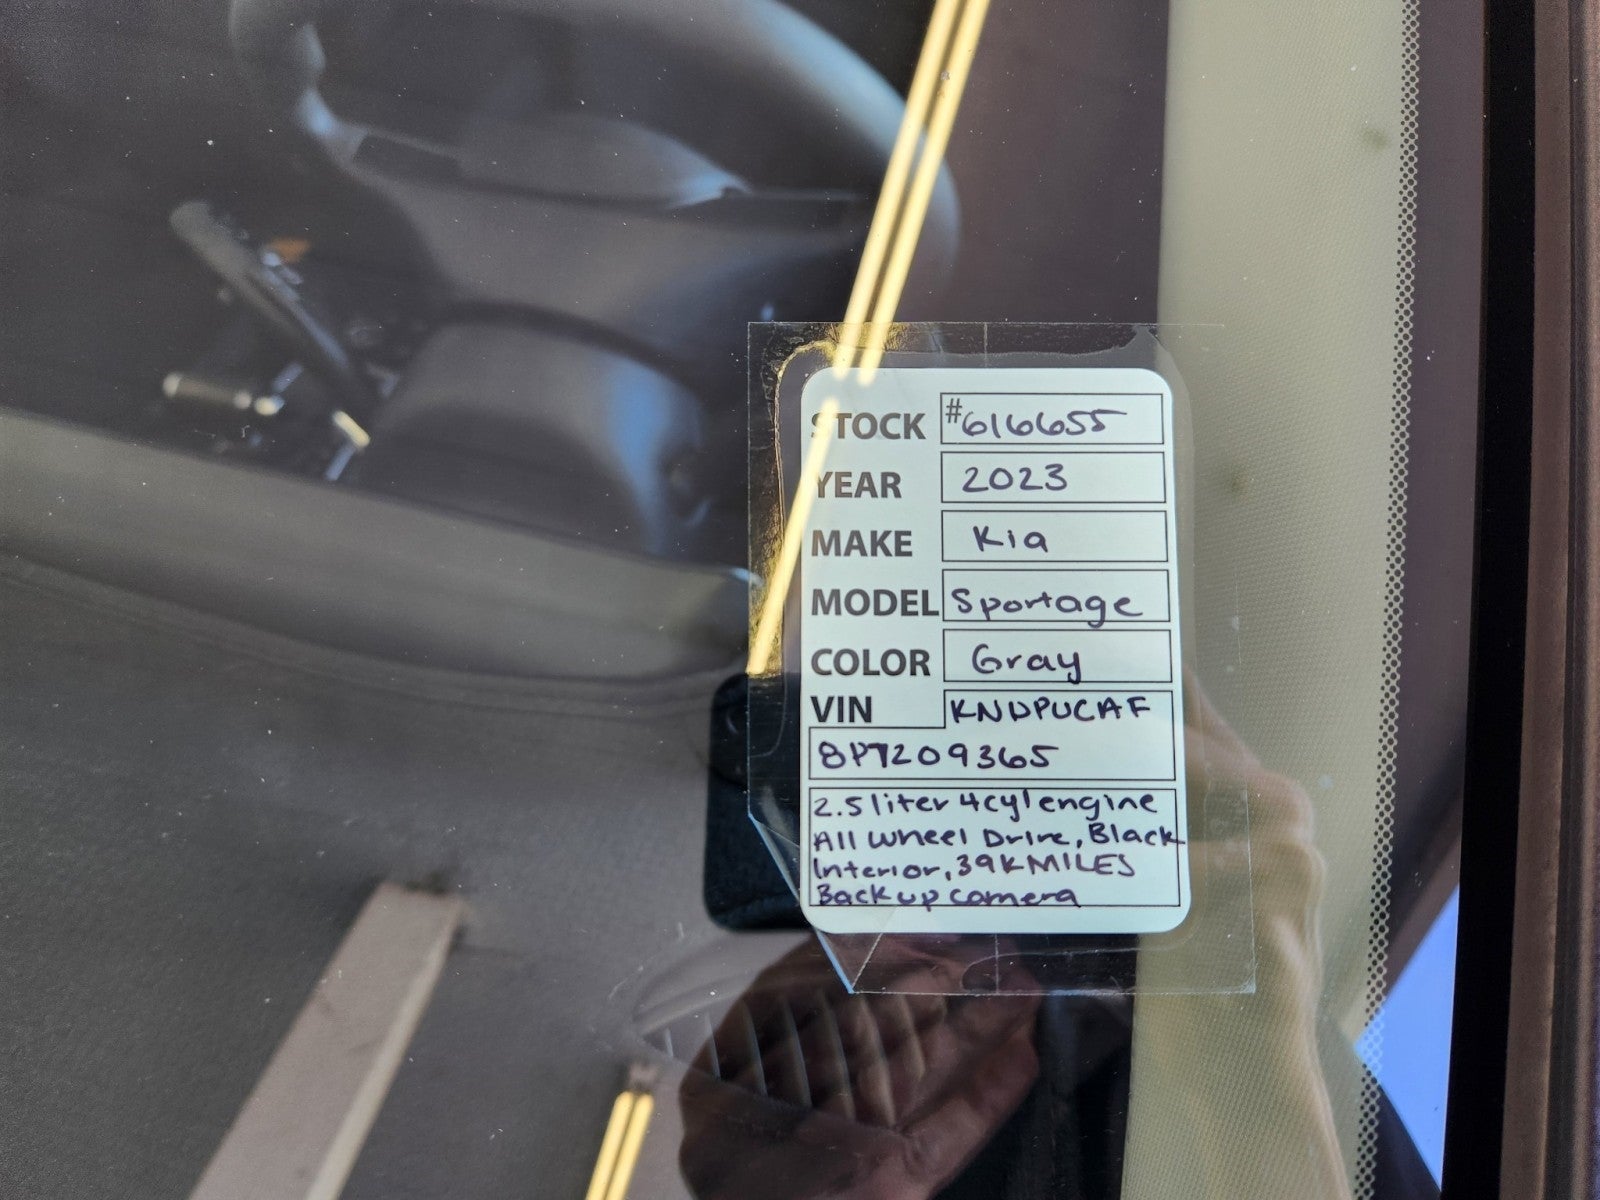 STOCK #616655
YEAR 2023
MAKE Kia
MODEL Sportage
COLOR Gray
VIN KNDPUCAF
8P7209365
2.5 liter 4cyl engine
All Wheel Drive, Black
Interior, 39K MILES
Backup camera